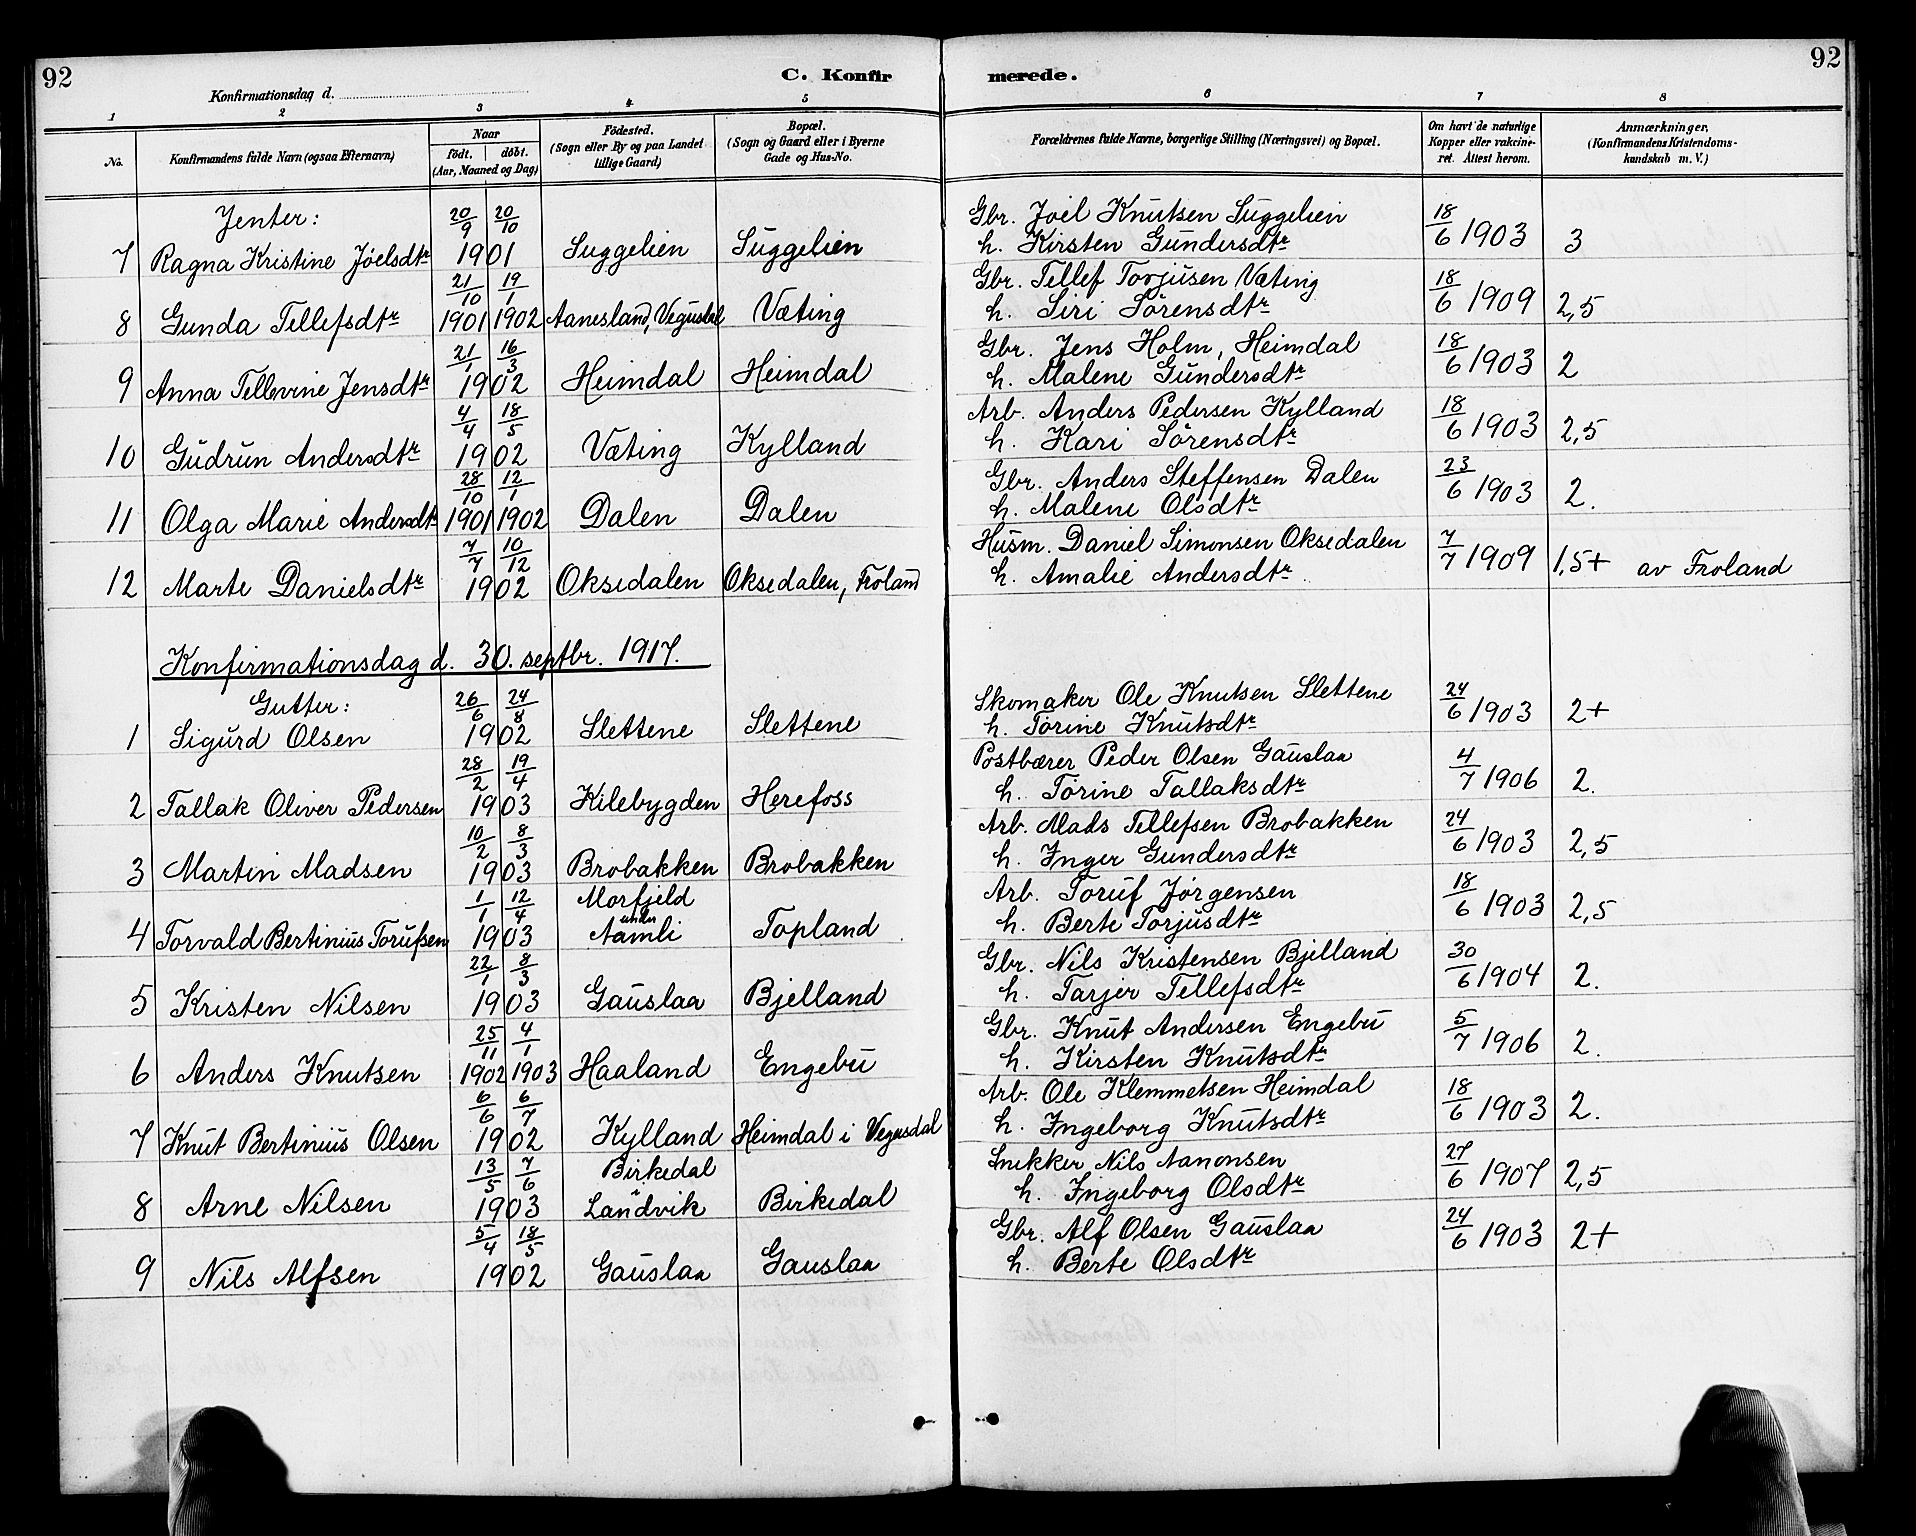 92
C. Konfirmerede.
92
Konfirmationsdag d.
1 2 3 4 5 6 7 8
No. | Konfirmandens fulde Navn (ogsaa Efternavn) | Naar født. | døbt. (Aar, Maaned og Dag) | Fødested. (Sogn eller By og paa Landet tillige Gaard) | Bopæl. (Sogn og Gaard eller i Byerne Gade og Hus-No. | Forældrenes fulde Navne, borgerlige Stilling (Næringsvei) og Bopæl. | Om havt de naturlige Kopper eller vakcineret. Attest herom. | Anmærkninger, (Konfirmandens Kristendomskundskab m. V.)
Jenter:
7 Ragna Kristine Jóelsdtr 20/9 20/10 1901 Suggelien Suggelien Gbr. Joël Knutsen Suggelien h. Kirsten Gundersdtr 18/6 1903 3
8 Gunda Tellefsdtr 21/10 1901 19/1 1902 Aanesland, Vegusdal Væting Gbr. Tellef Torjusen Væting h. Siri Sörensdtr 18/6 1909 2,5
9 Anna Tellevine Jensdtr 21/1 16/3 1902 Heimdal Heimdal Gbr. Jens Holm, Heimdal h. Malene Gundersdtr 18/6 1903 2
10 Gudrun Andersdtr 4/4 18/5 1902 Væting Kylland Arb. Anders Pedersen Kylland h. Kari Sörensdtr 18/6 1903 2,5
11 Olga Marie Andersdtr 28/10 1901 12/1 1902 Dalen Dalen Gbr. Anders Steffensen Dalen h. Malene Olsdtr 23/6 1903 2.
12 Marte Danielsdtr 7/7 10/12 1902 Oksedalen Oksedalen, Froland Husm. Daniel Simonsen Oksedalen h. Amalie Andersdtr. 7/7 1909 1,5+ av Froland
Konfirmationsdag d. 30. septbr. 1917.
Gutter:
1 Sigurd Olsen 26/6 24/8 1902 Slettene Slettene Skomaker Ole Knutsen Slettene h. Torine Knutsdtr 24/6 1903 2+
2 Tallak Oliver Pedersen 28/2 19/4 1903 Kilebygden Herefoss Postbærer Peder Olsen Gauslaa h. Torine Tallaksdtr 4/7 1906 2.
3 Martin Madsen 10/2 8/3 1903 Brobakken Brobakken Arb. Mads Tellefsen Brobakken h. Inger Gundersdtr 24/6 1903 2,5
4 Torvald Bertinius Torufsen 1/1 12/4 1903 Morfjeld under Aamli Topland Arb. Toruf Jørgensen h. Berte Torjusdtr 18/6 1903 2,5
5 Kristen Nilsen 22/1 8/3 1903 Gauslaa Bjelland Gbr. Nils Kristensen Bjelland h. Tarjer Tellefsdtr 30/6 1904 2.
6 Anders Knutsen 25/11 1902 4/1 1903 Haaland Engebu Gbr. Knut Andersen Engebu h. Kirsten Knutsdtr 5/7 1906 2.
7 Knut Bertinius Olsen 6/6 6/7 1902 Kylland Heimdal i Vegusdal Arb. Ole Klemmetsen Heimdal h. Ingeborg Knutsdtr 18/6 1903 2.
8 Arne Nilsen 13/5 7/6 1903 Birkedal Landvik Birkedal Snikker Nils Aanonsen h. Ingeborg Olsdtr 27/6 1907 2,5
9 Nils Alfsen 5/4 18/5 1902 Gauslaa Gauslaa Gbr. Alf Olsen Gauslaa h. Berte Olsdtr 24/6 1903 2+